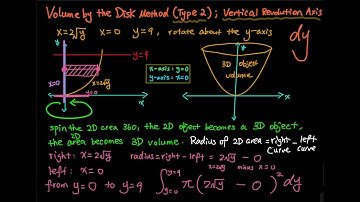 Volume by the Disk Method (Type 2) ; Vertical Revolution Axis
x=2√y x=0 y=9, rotate about the y-axis dy
y y=9 y
x=0 x=2√y
x-axis: y=0
y-axis: x=0
3D object
volume
y=0 x x
spin the 2D area 360, the 2D object becomes a 3D object,
2D
the area becomes 3D volume. Radius of 2D area = right - left
curve curve
right: x=2√y radius = right - left = 2√y - 0
left: x=0 x=2√y minus x=0
from y=0 to y=9 ∫ y=0 y=9 π(2√y - 0)² dy